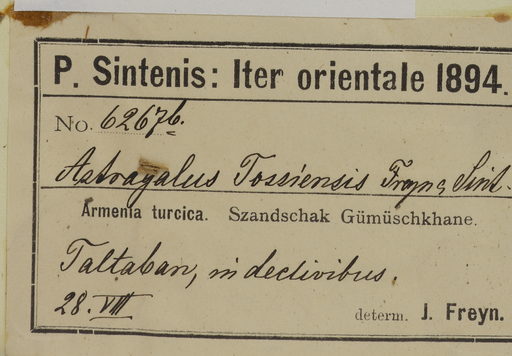 P. Sintenis: Iter orientale 1894.
No. 6267b.
Astragalus Tossiensis Freyn & Sint.
Armenia turcica. Szandschak Gümüschkhane.
Taltaban, in declivibus.
28. VIII
determ. J. Freyn.